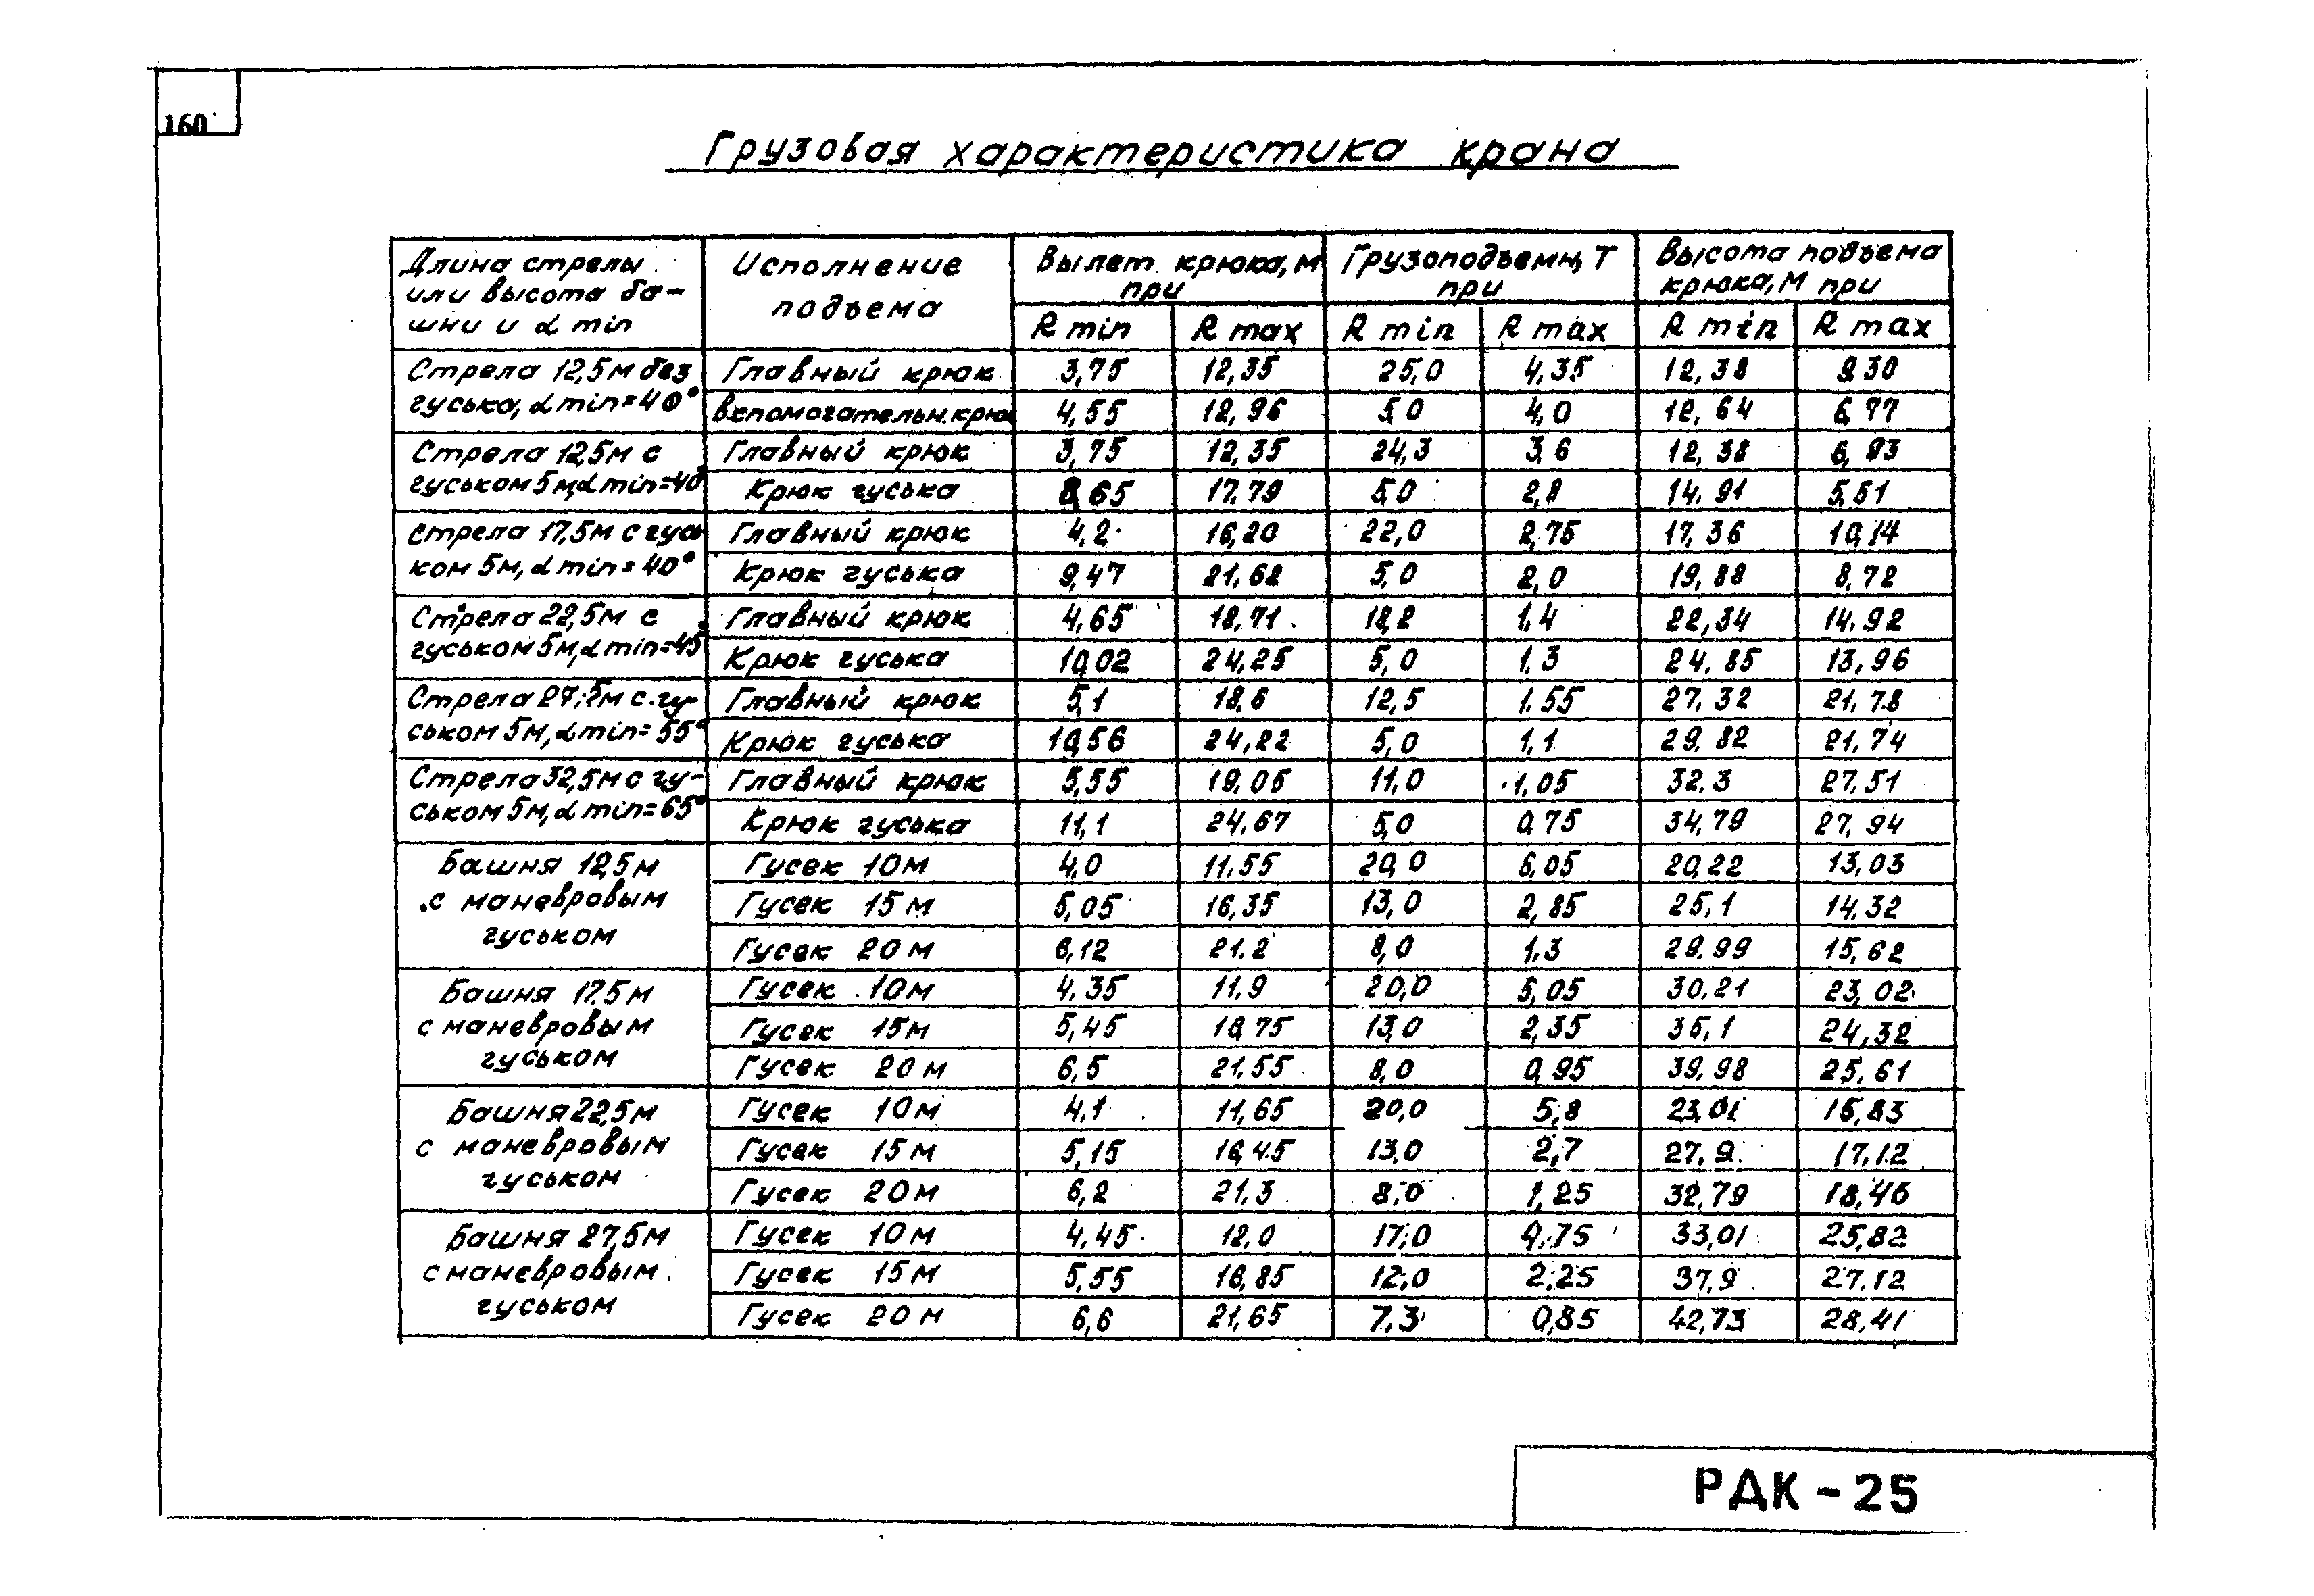 160
Грузовая характеристика крана
Длина стрелы или высота башни и α min | Исполнение подъема | Вылет крюка, м при | Грузоподъемн, Т при | Высота подъема крюка, М при
R min | R max | R min | R max | R min | R max
Стрела 12,5м без гуська, α min=40° | Главный крюк | 3,75 | 12,35 | 25,0 | 4,35 | 12,38 | 30
вспомогательн. крюк | 4,55 | 12,96 | 5,0 | 4,0 | 12,64 | 6,77
Стрела 12,5м с гуськом 5м, α min=40° | Главный крюк | 3,75 | 12,35 | 24,3 | 3,6 | 12,38 | 6,93
Крюк гуська | 8,65 | 17,79 | 5,0 | 2,8 | 14,91 | 5,51
Стрела 17,5м с гуськом 5м, α min=40° | Главный крюк | 4,2 | 16,20 | 22,0 | 2,75 | 17,36 | 10,14
Крюк гуська | 9,47 | 21,62 | 5,0 | 2,0 | 19,88 | 8,72
Стрела 22,5м с гуськом 5м, α min=45° | Главный крюк | 4,65 | 18,71 | 18,2 | 1,4 | 22,34 | 14,92
Крюк гуська | 10,02 | 24,25 | 5,0 | 1.3 | 24.85 | 13,96
Стрела 27,5м с гуськом 5м, α min=55° | Главный крюк | 5,1 | 18,6 | 12,5 | 1.55 | 27,32 | 21,78
Крюк гуська | 10,56 | 24,22 | 5,0 | 1,1 | 29.82 | 21,74
Стрела 32,5м с гуськом 5м, α min=65° | Главный крюк | 5,55 | 19,05 | 11,0 | 1,05 | 32.3 | 27,51
Крюк гуська | 11,1 | 24,67 | 5,0 | 0,75 | 34,79 | 27,94
Башня 12,5м с маневровым гуськом | Гусек 10м | 4,0 | 11,55 | 20,0 | 6,05 | 20,22 | 13,03
Гусек 15м | 5,05 | 16,35 | 13,0 | 2,85 | 25,1 | 14,32
Гусек 20м | 6,12 | 21.2 | 8,0 | 1,3 | 29.99 | 15,62
Башня 17,5м с маневровым гуськом | Гусек 10м | 4,35 | 11,9 | 20,0 | 5,05 | 30,21 | 23,02
Гусек 15м | 5,45 | 16,75 | 13,0 | 2,35 | 35,1 | 24,32
Гусек 20м | 6,5 | 21,55 | 8,0 | 0,95 | 39,98 | 25,61
Башня 22,5м с маневровым гуськом | Гусек 10м | 4,1 | 11,65 | 20,0 | 5,8 | 23,01 | 15,83
Гусек 15м | 5,15 | 16,45 | 13,0 | 2,7 | 27,9 | 17,12
Гусек 20м | 6,2 | 21,3 | 8,0 | 1,25 | 32,79 | 18,46
Башня 27,5м с маневровым гуськом | Гусек 10м | 4,45 | 12,0 | 17,0 | 4,75 | 33,01 | 25,82
Гусек 15м | 5,55 | 16,85 | 12,0 | 2,25 | 37,9 | 27,12
Гусек 20м | 6,6 | 21,65 | 7,3 | 0,85 | 42,73 | 28,41
РДК-25